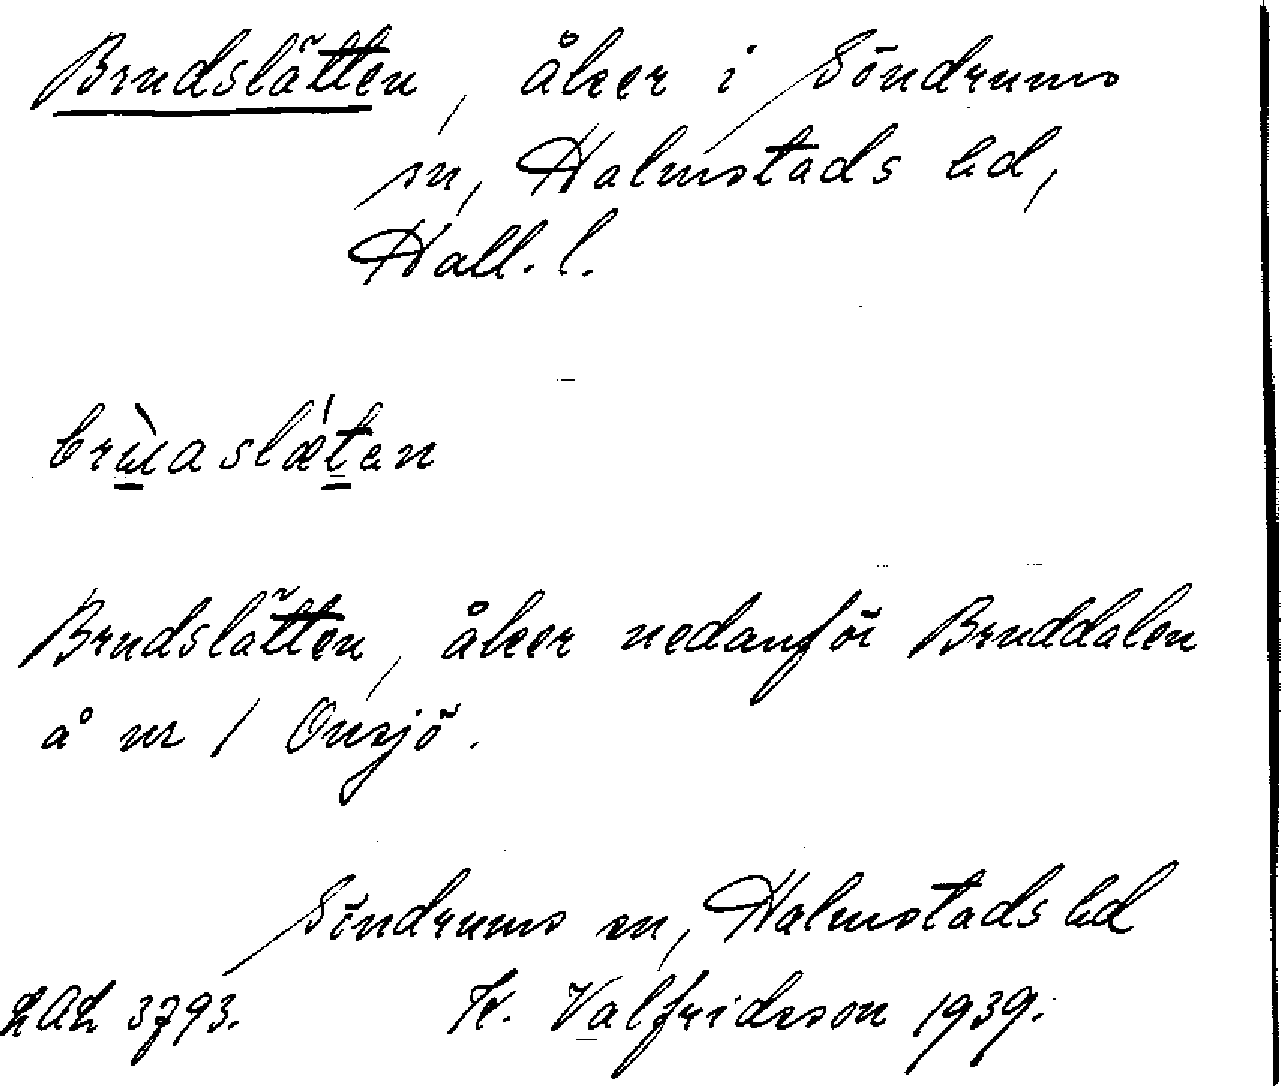 Brudslätten, åker i Söndrums
sn, Halmstads hd,
Hall. l.
Brudslätten, åker nedanför Bruddalen
å nr 1 Onsjö.
Söndrums sn, Halmstads hd
LAL 3793. K. Valfridsson 1939.